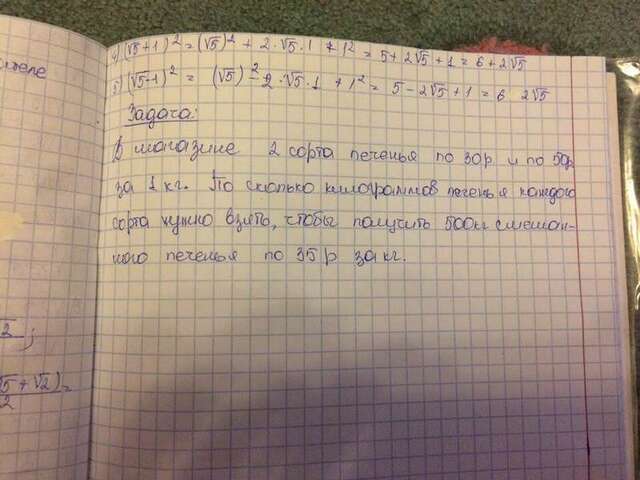 ителе
4) (√5+1)² = (√5)² + 2·√5·1 + 1² = 5+2√5+1 = 6+2√5
5) (√5-1)² = (√5)² - 2·√5·1 + 1² = 5-2√5+1 = 6 2√5
Задача:
В магазине 2 сорта печенья по 30р и по 50р
за 1 кг. По сколько килограммов печенья каждого
сорта нужно взять, чтобы получить 500кг смешан-
ного печенья по 35 р за кг.
√2;
√5+√2)=
2